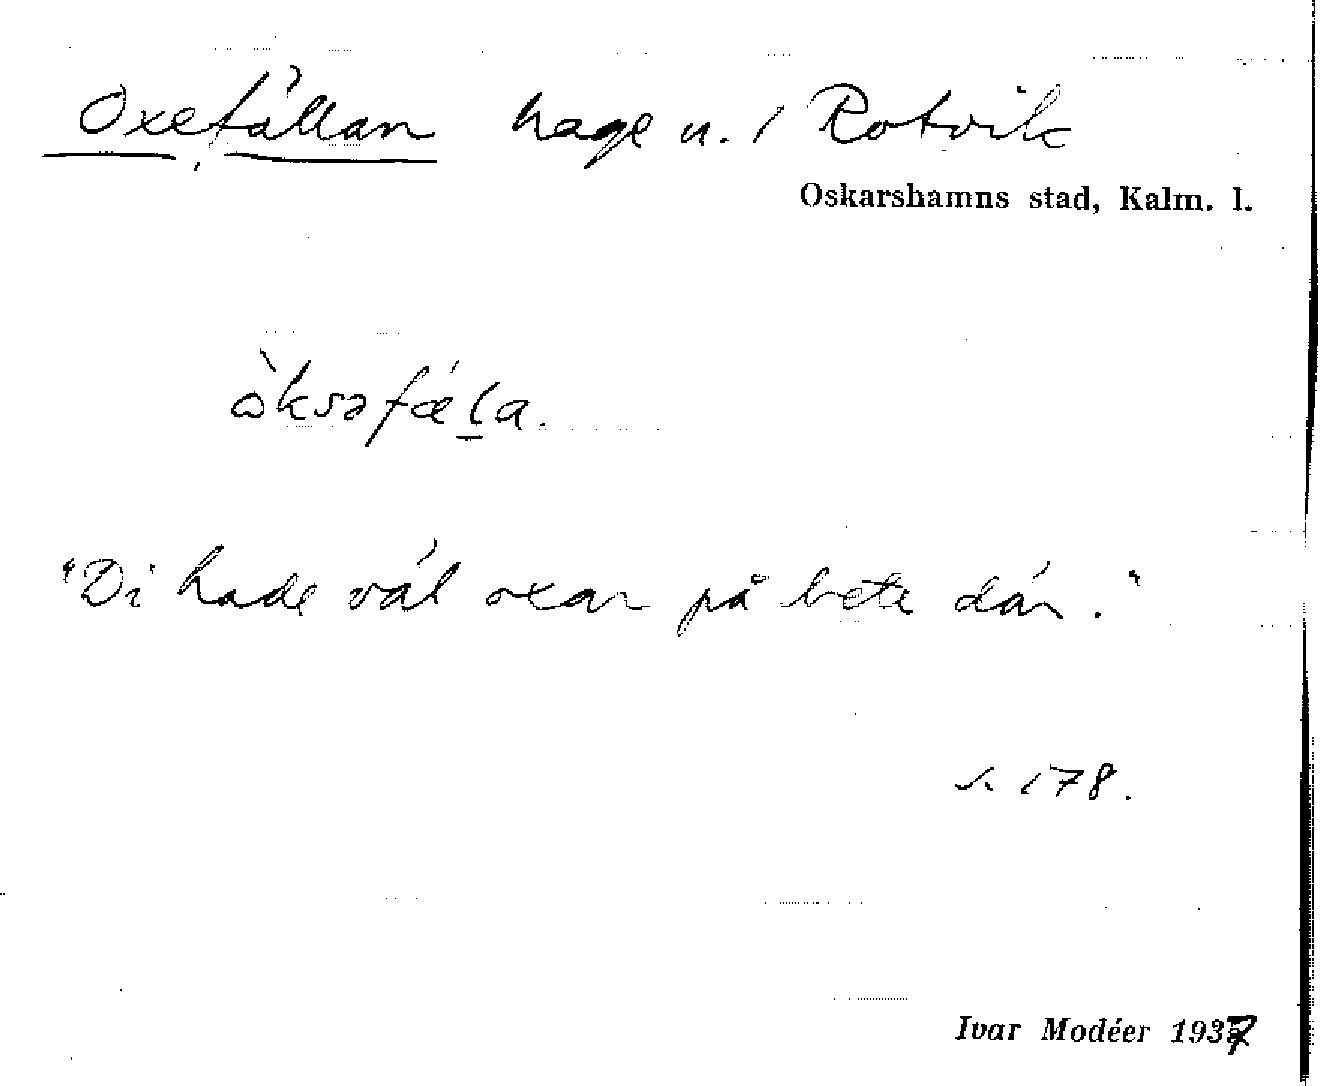 Oxefällan hage u. / Rotvik
Oskarshamns stad, Kalm. l.
òksəfæ̀ḷa.
"Di hade väl oxar på bete där."
s. 178.
Ivar Modéer 1937